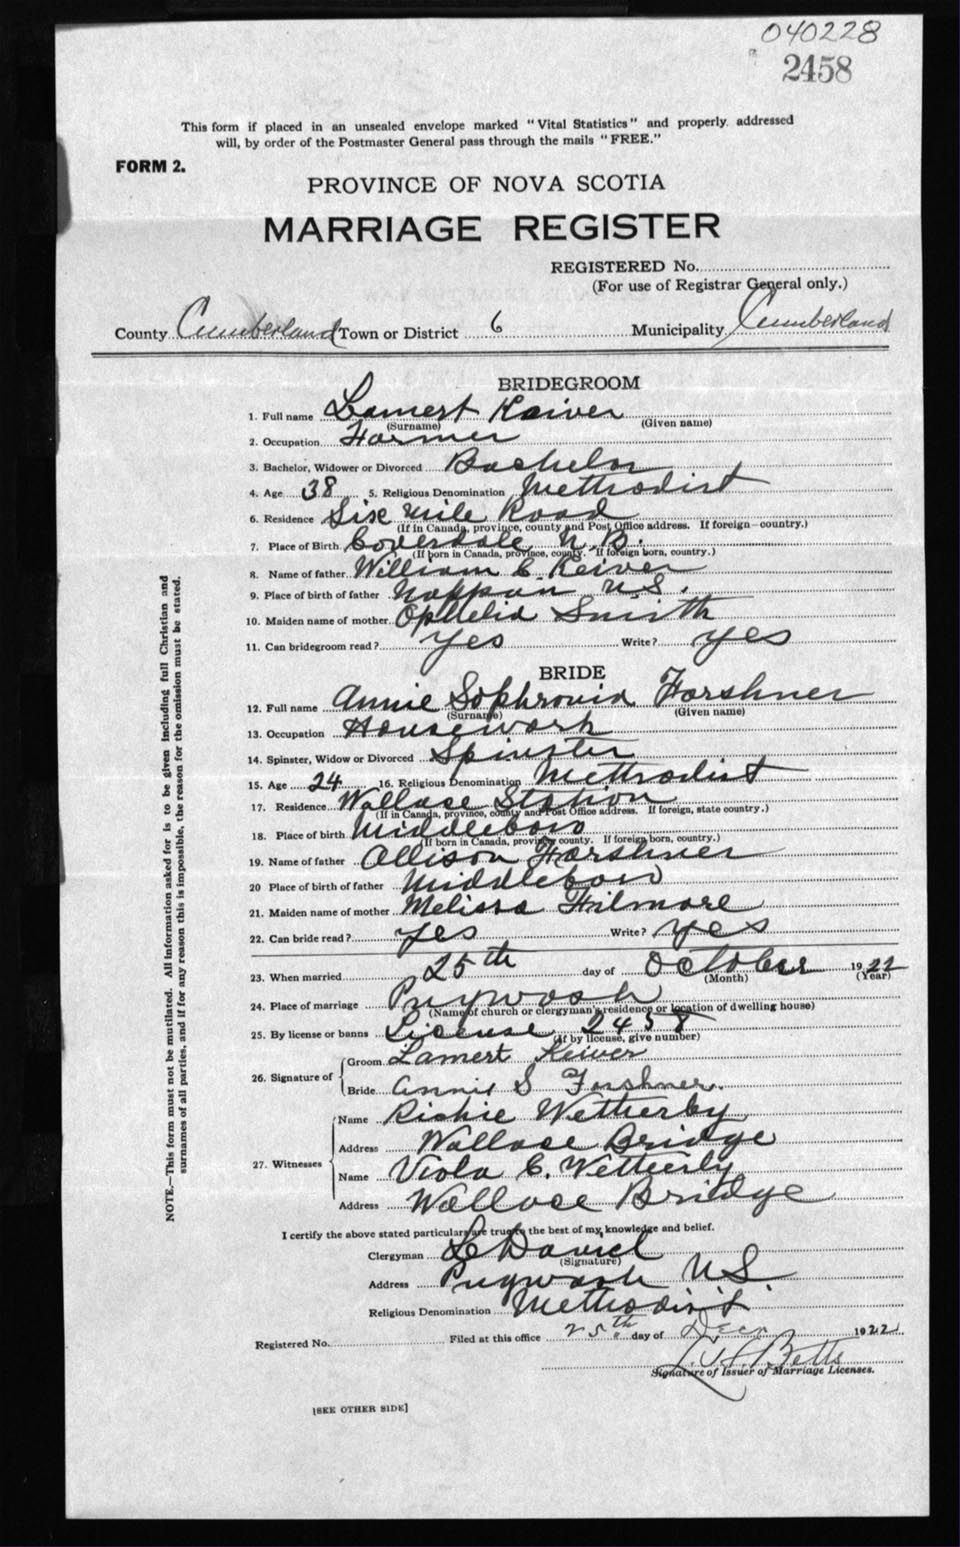 040228
2458
This form if placed in an unsealed envelope marked "Vital Statistics" and properly addressed
will, by order of the Postmaster General pass through the mails "FREE."
FORM 2.
PROVINCE OF NOVA SCOTIA
MARRIAGE REGISTER
REGISTERED No.
(For use of Registrar General only.)
County Cumberland Town or District 6 Municipality Cumberland
BRIDEGROOM
1. Full name Lamert Keiver
(Surname) (Given name)
2. Occupation Farmer
3. Bachelor, Widower or Divorced Bachelor
4. Age 38 5. Religious Denomination Methodist
6. Residence Six Mile Road
(If in Canada, province, county and Post Office address. If foreign—country.)
7. Place of Birth Coverdale N.B.
(If born in Canada, province, county. If foreign born, country.)
8. Name of father William C Keiver
9. Place of birth of father Nappan N.S.
10. Maiden name of mother Ophelia Smith
11. Can bridegroom read? yes Write? yes
BRIDE
12. Full name Annie Sophronia Forshner
(Surname) (Given name)
13. Occupation Housework
14. Spinster, Widow or Divorced Spinster
15. Age 24 16. Religious Denomination Methodist
17. Residence Wallace Station
(If in Canada, province, county and Post Office address. If foreign, state country.)
18. Place of birth Middleboro
(If born in Canada, province county. If foreign born, country.)
19. Name of father Allison Forshner
20 Place of birth of father Middleboro
21. Maiden name of mother Melissa Filmore
22. Can bride read? yes Write? yes
23. When married 25th day of October 1922
(Month) (Year)
24. Place of marriage Pugwash
(Name of church or clergyman's residence or location of dwelling house)
25. By license or banns License 2458
(If by license, give number)
26. Signature of Groom Lamert Keiver
Bride Annie S Forshner
27. Witnesses Name Richie Wetherby
Address Wallace Bridge
Name Viola C. Wetherby
Address Wallace Bridge
I certify the above stated particulars are true to the best of my knowledge and belief.
Clergyman
(Signature)
Address Pugwash N.S.
Religious Denomination Methodist
Registered No. Filed at this office 25th day of Dec 1922
L.H. Betts
Signature of Issuer of Marriage Licenses.
[SEE OTHER SIDE]
NOTE.—This form must not be mutilated. All information asked for is to be given including full Christian and
surnames of all parties, and if for any reason this is impossible, the reason for the omission must be stated.